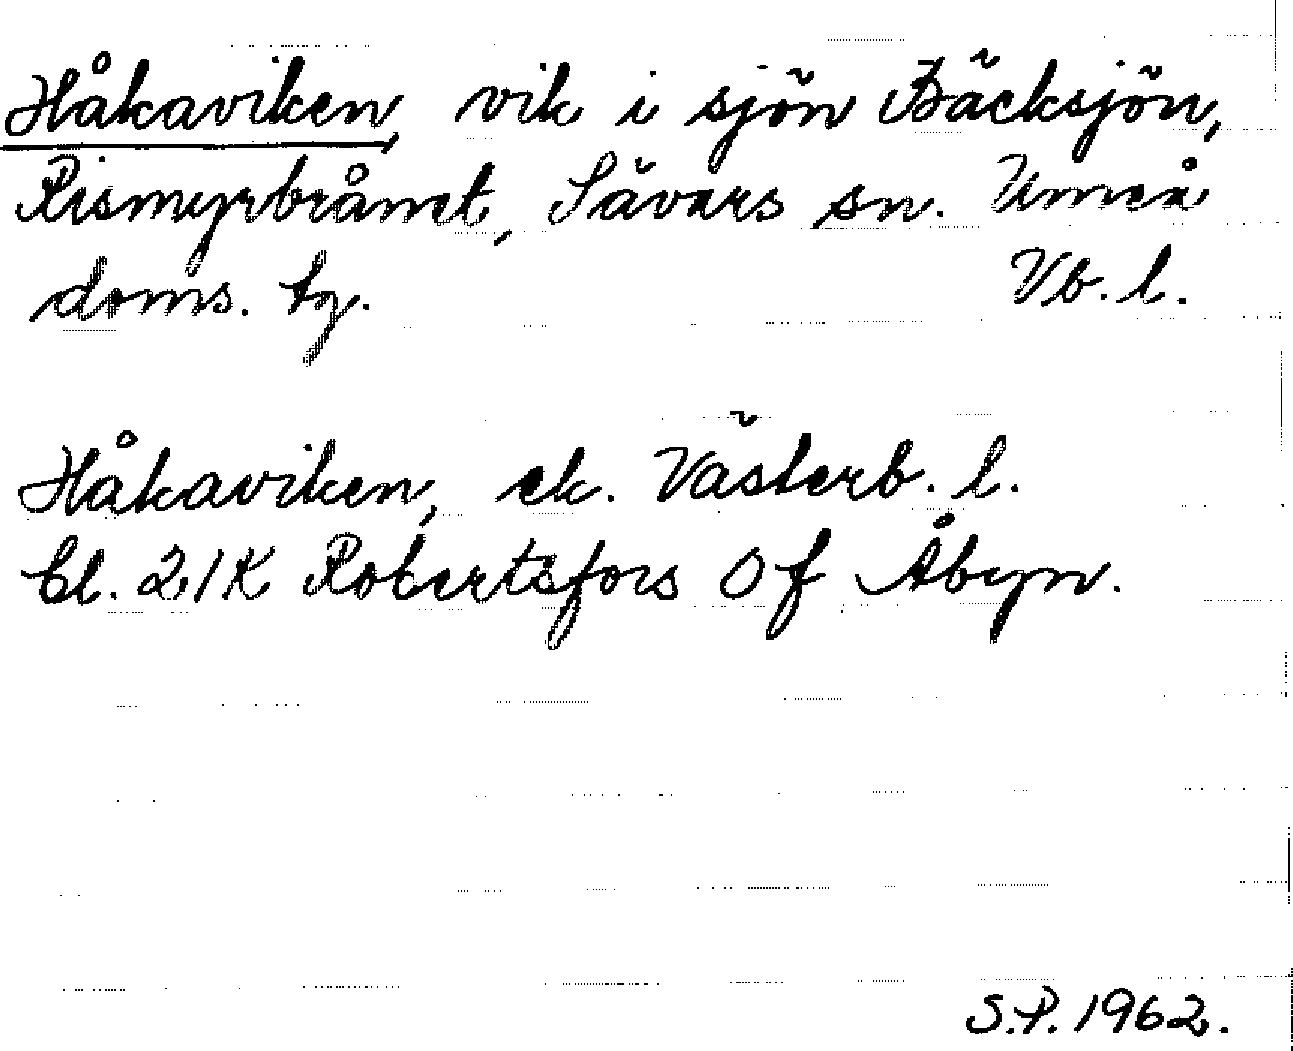 Håkaviken, vik i sjön Bäcksjön,
Rismyrbrånet, Sävars sn. Umeå
doms. tg. Vb. l.
Håkaviken, ek. Västerb. l.
bl. 21K Robertsfors Of Åbyn.
S.P. 1962.